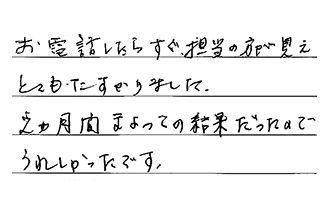 お電話したらすぐ、担当の方が見え
とてもたすかりました。
2ヵ月間まよっての結果だったので
うれしかったです。